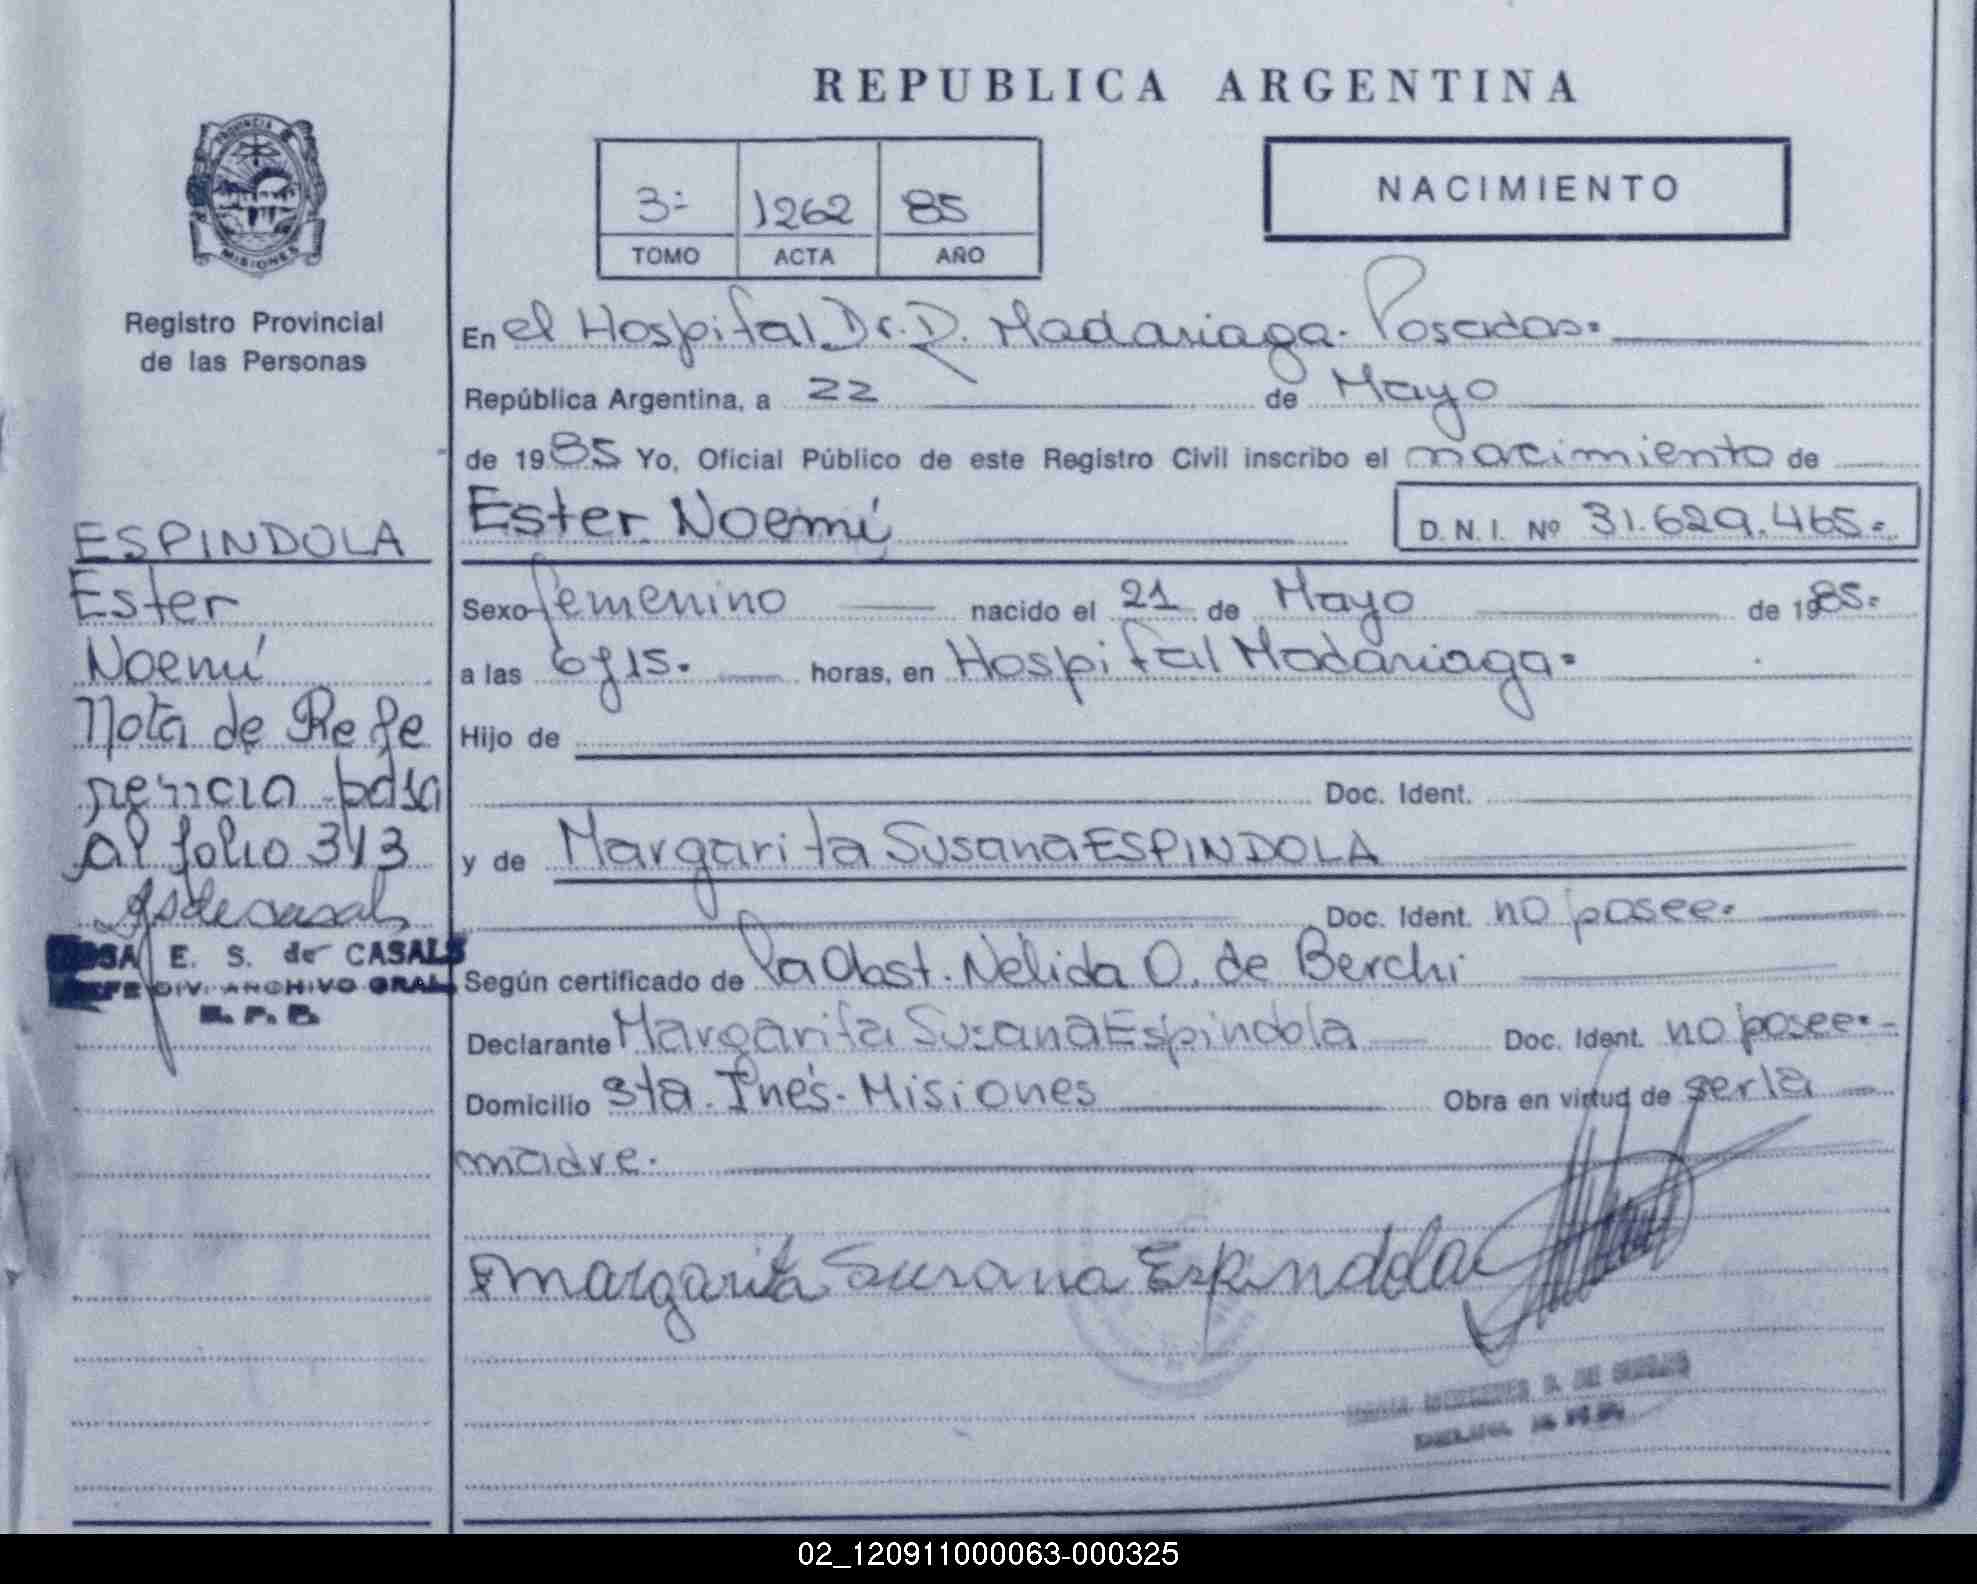 REPUBLICA ARGENTINA
PROVINCIA DE
MISIONES
Registro Provincial
de las Personas
3º 1262 85
TOMO ACTA AÑO
NACIMIENTO
En el Hospital Dr. R. Madariaga. Posadas.
República Argentina, a 22 de Mayo
de 1985 Yo, Oficial Público de este Registro Civil inscribo el nacimiento de
Ester Noemí D. N. I. Nº 31.629.465.
Sexo femenino nacido el 21 de Mayo de 1985.
a las 6y15. horas, en Hospital Madariaga.
Hijo de
Doc. Ident.
y de Margarita Susana ESPINDOLA
Doc. Ident. no posee.
Según certificado de la Obst. Nelida O. de Berchi
Declarante Margarita Susana Espindola Doc. Ident. no posee.
Domicilio Sta. Inés. Misiones Obra en virtud de ser la
madre.
Margarita Susana Espindola
ESPINDOLA
Ester
Noemí
Nota de Refe
rencia pasa
al folio 313
E. S. de CASALS
DIV. ARCHIVO GRAL.
R. P. P.
02_120911000063-000325